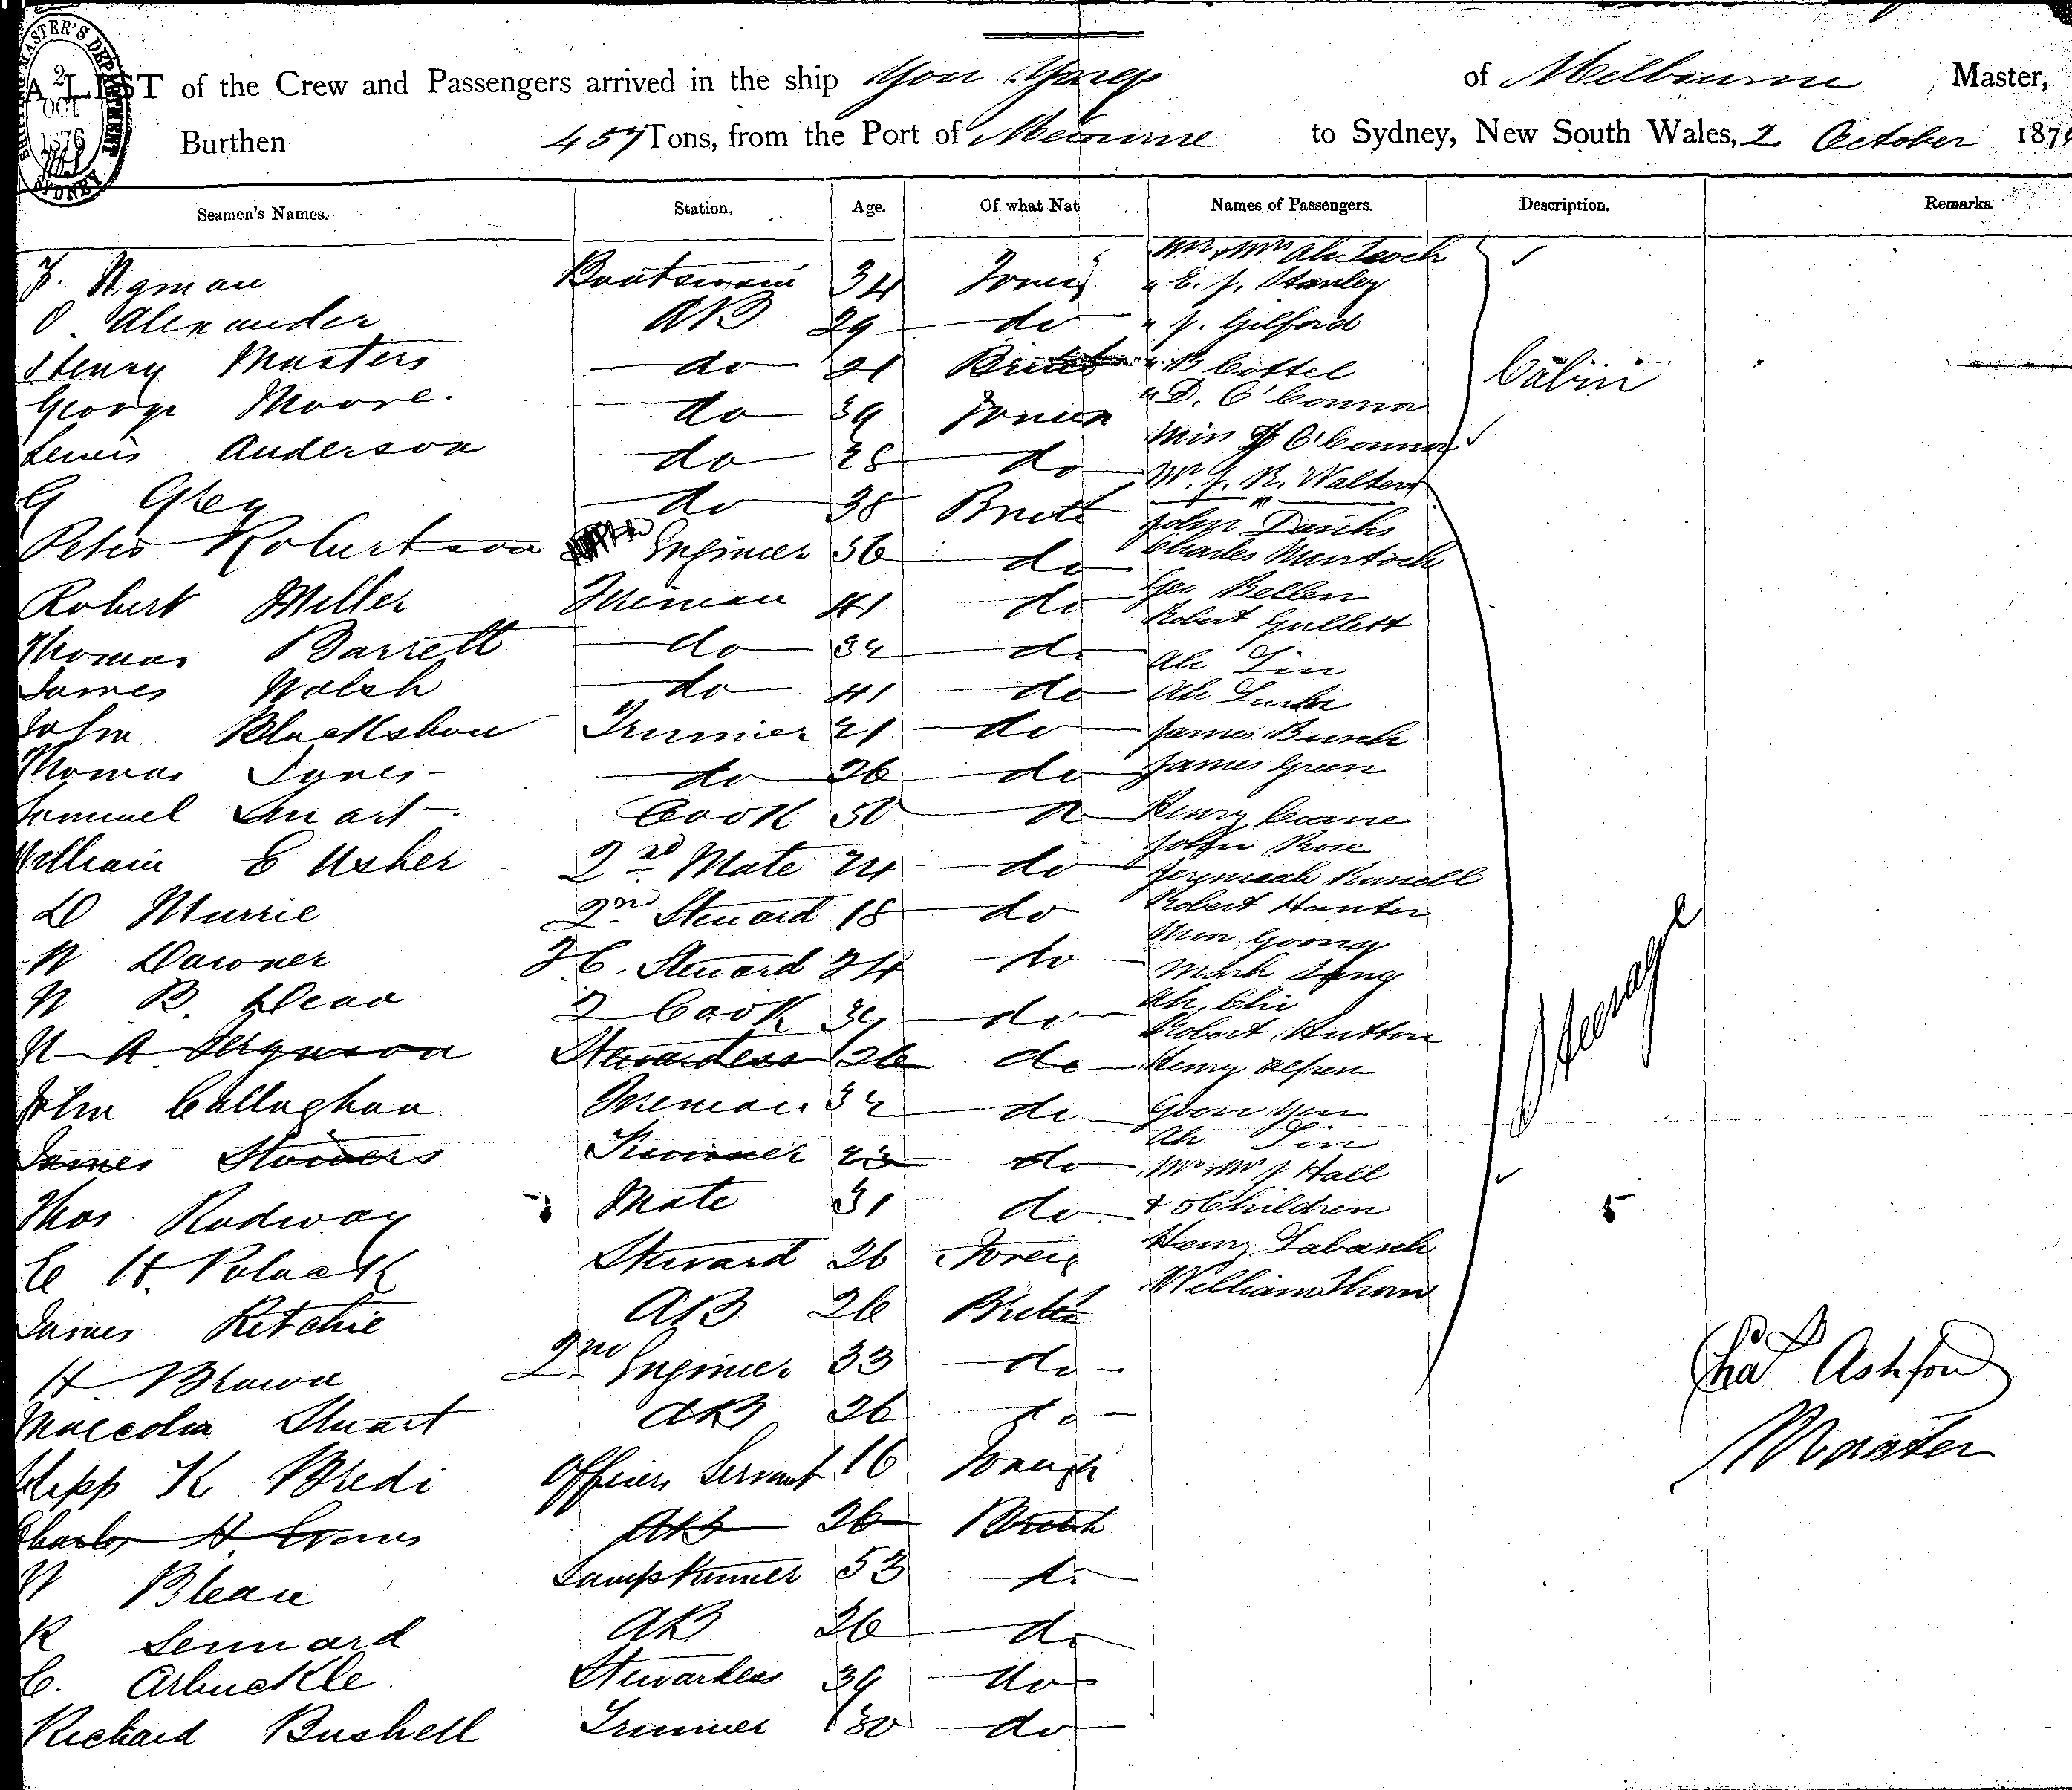 A LIST of the Crew and Passengers arrived in the ship You Yangs of Melbourne Master,
Burthen 457 Tons, from the Port of Melbourne to Sydney, New South Wales, 2 October 1876
2 OCT 1876
SYDNEY
Seamen's Names. Station, Age. Of what Nat Names of Passengers. Description. Remarks.
Boatswain 34 Foreig
O Alexander AB 29 do
Henry Masters do 21 Britsh
George Moore. do 39 Foreign
Lewis Anderson do 28 do
G Grey do 38 Britt
Peter Robertson Engineer 56 do
Robert Miller Fireman 41 do
Thomas Barrett do 34 do
James Walsh do 41 do
John Blackshaw Trimmer 21 do
Thomas Jones do 26 do
Samuel Smart Cook 50 do
William E Usher 2nd Mate 24 do
D Murrie 2nd Steward 18 do
W Dawner F C. Steward 24 do
W B. Dean 2 Cook 34 do
W A Ferguson Stewardess 26 do
John Callaghan Fireman 32 do
James Stowers Trimmer 23 do
Thos Rodway Mate 31 do
C H. Polack Steward 26 Foreig
James Ritchie AB 26 British
H. Brown 2nd Engineer 33 do
Malcolm Stuart AB 26 do
K Bredi Officers Servant 16 Foreign
Charles H. Evans AB 26 British
W Blean Lamptrimmer 53 do
R Lennard AB 26 do
C. Arbuckle. Stewardess 39 do
Richard Bushell Trimmer 30 do
Mr & Mrs Ah
" E. J. Stanley
" J. Gilford
" B Cottel
" D. O'Connor
Miss O'Connor
Mr. J. R. Walters
John Danks
Charles Murtoch
Geo Bellen
Robert Gullett
Ah Lin
Ah
James Bunch
James Green
Henry
John Rose
Jeremiah Russell
Robert Hunter
Goong
Ah Chi
Robert Hutton
Henry Alpen
Goon Yen
Ah Lin
Mr Mrs J Hall
& 5 Children
Henry Labasch
William
Cabin
Steerage
5
Chas Ashford
Master